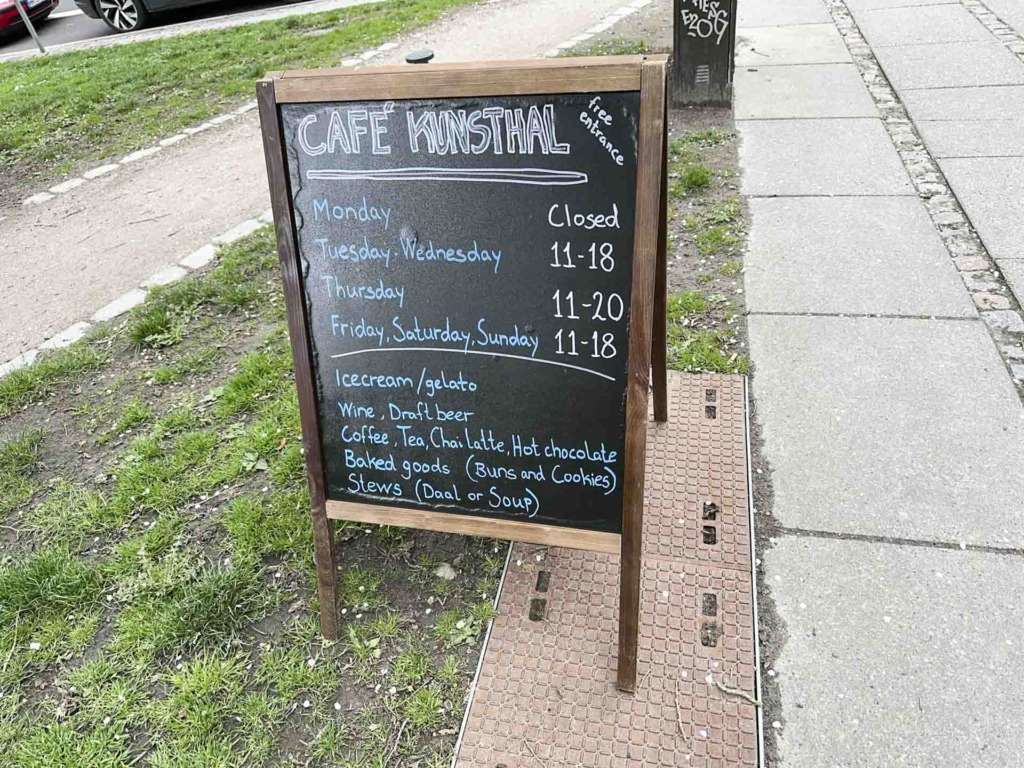 CAFÉ KUNSTHAL
free
entrance
Monday Closed
Tuesday-Wednesday 11-18
Thursday 11-20
Friday, Saturday, Sunday 11-18
Icecream/gelato
Wine, Draft beer
Coffee, Tea, Chai latte, Hot chocolate
Baked goods (Buns and Cookies)
Stews (Daal or Soup)